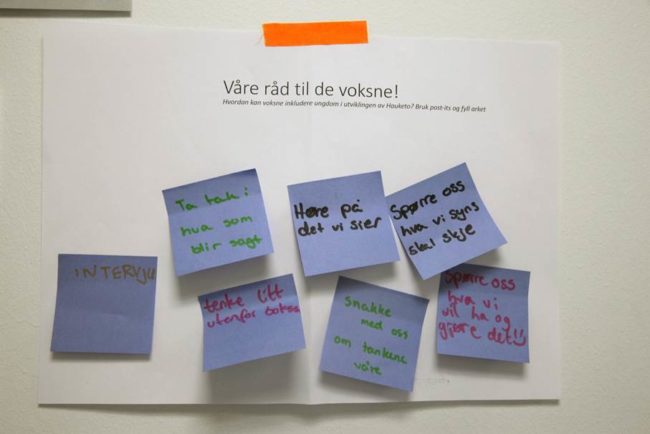 Våre råd til de voksne!
Hvordan kan voksne inkludere ungdom i utviklingen av Hauketo? Bruk post-its og fyll arket
Ta tak i
hva som
blir sagt
Høre på
det vi sier
Spørre oss
hva vi syns
skal skje
INTERVJU
tenke litt
utenfor boksen
Snakke
med oss
om tankene
våre
Spørre oss
hva vi
vil ha og
gjøre det!